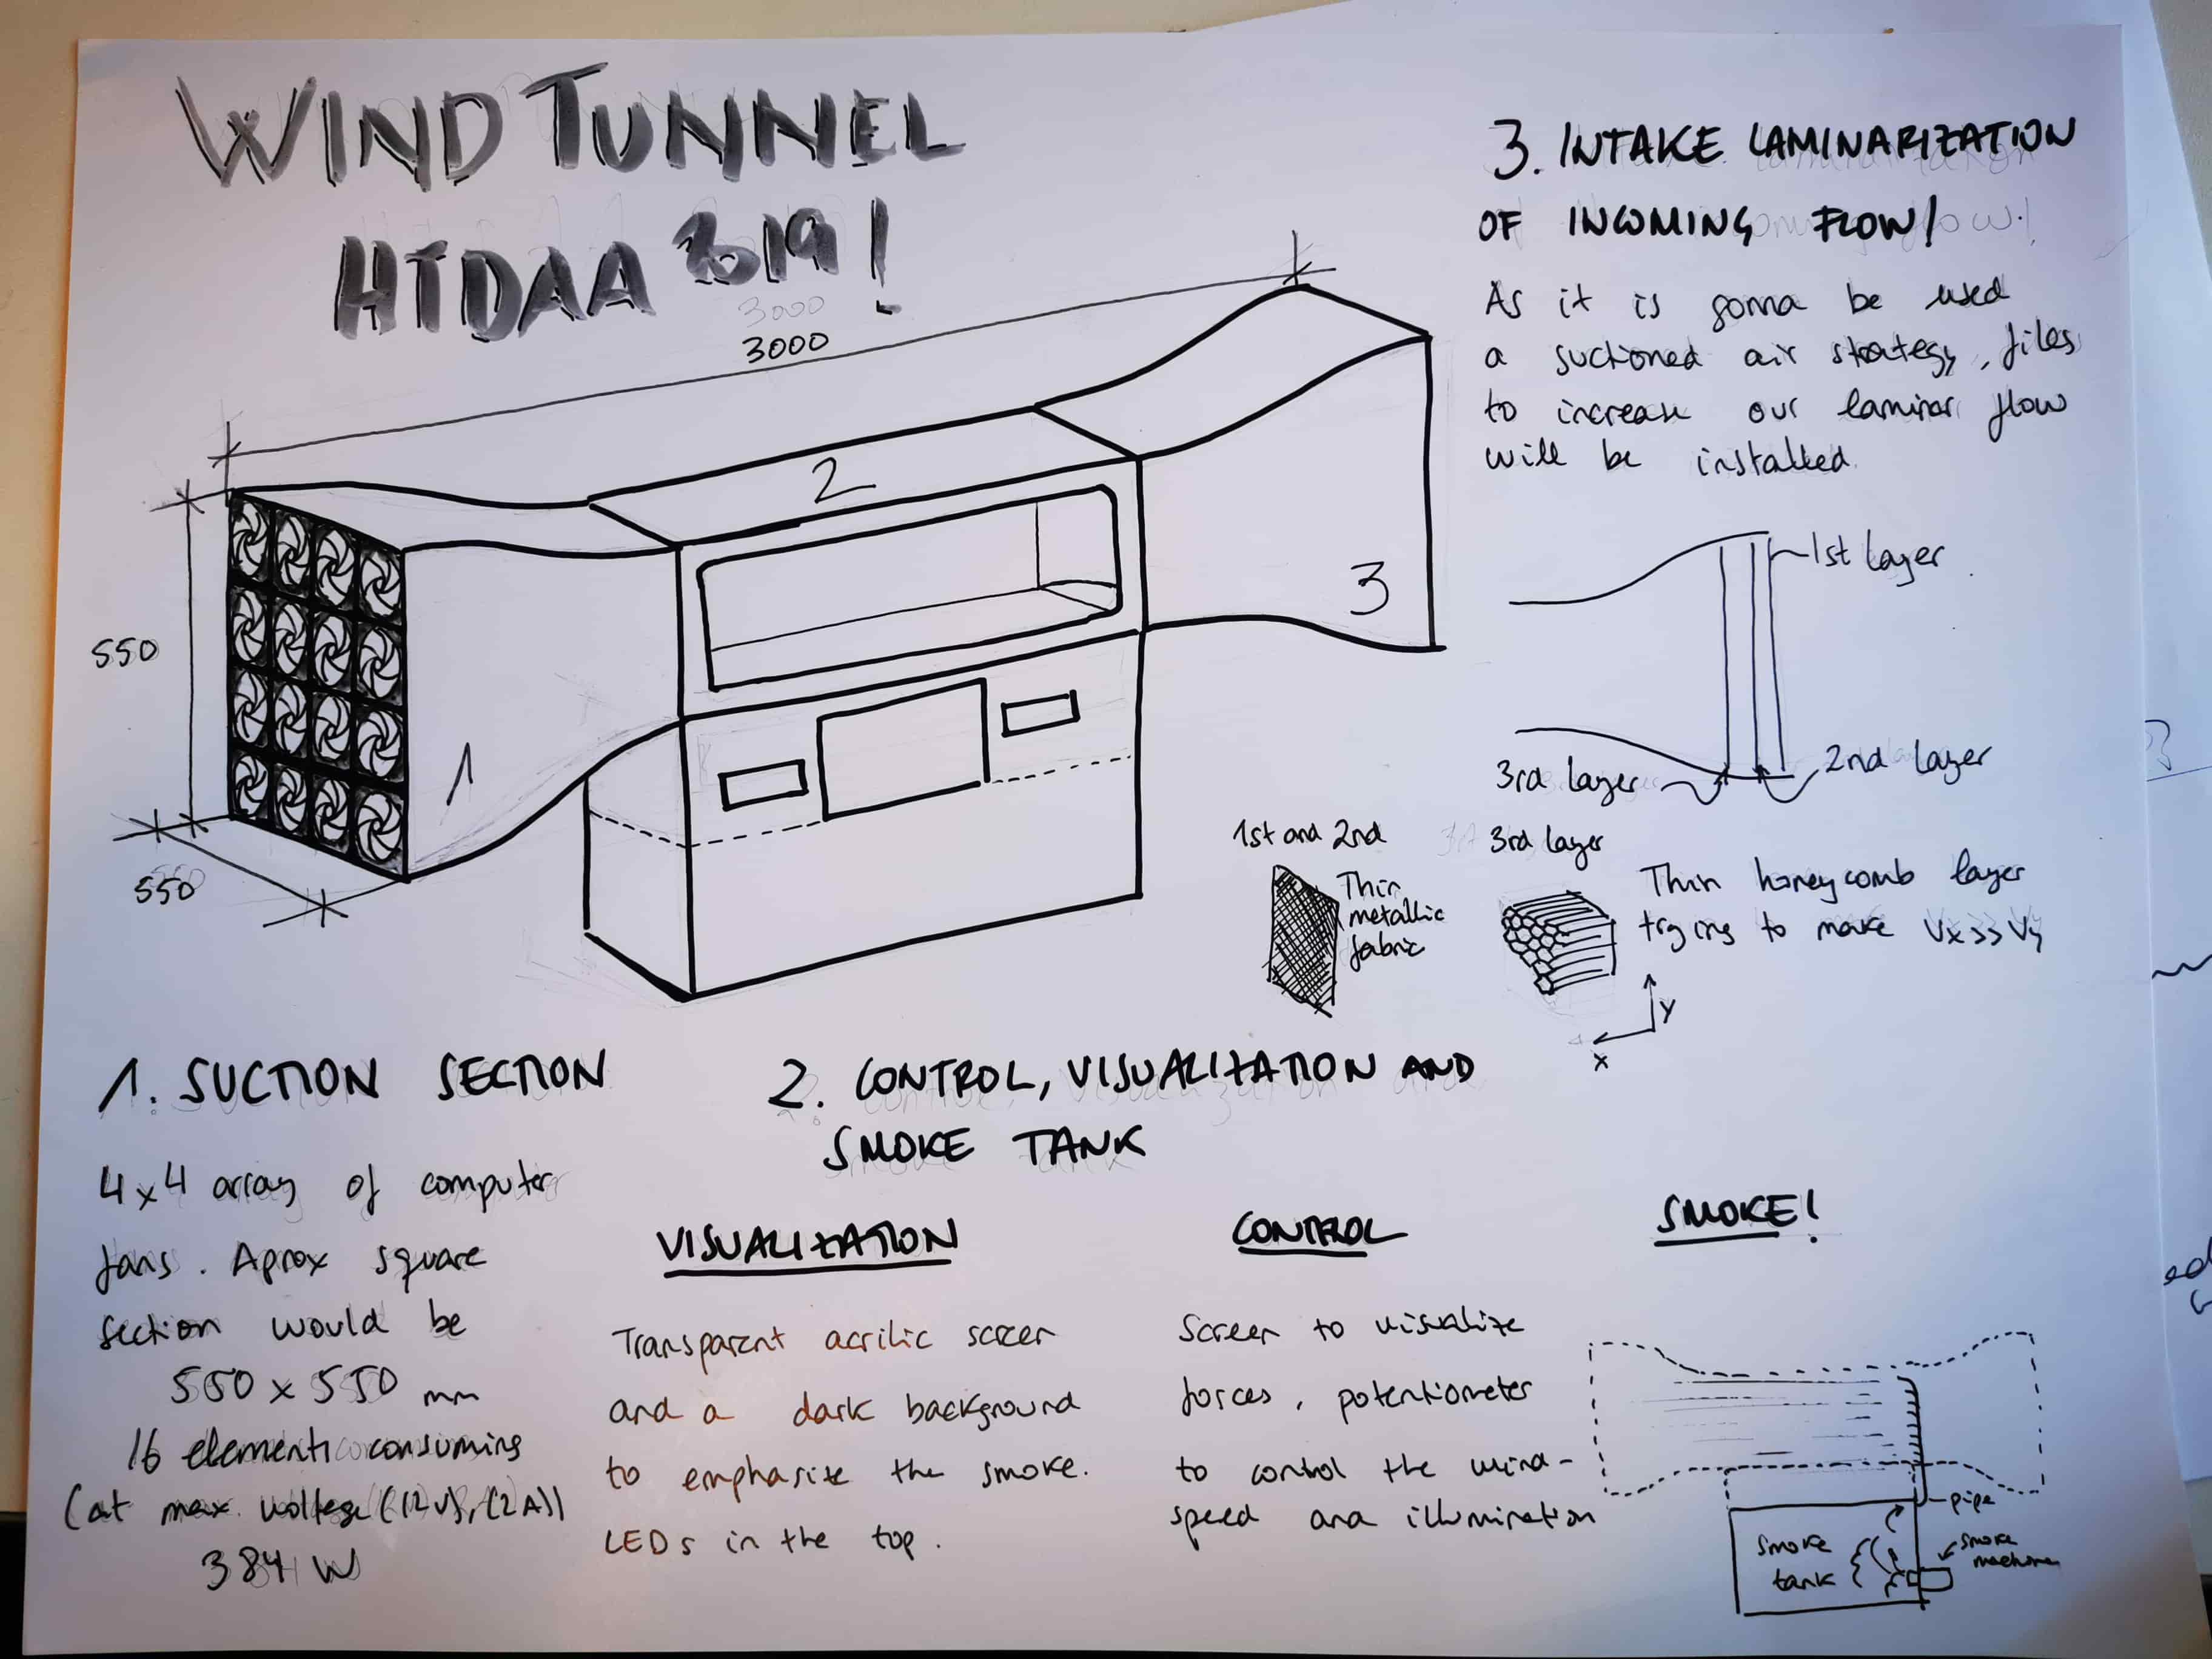 WIND TUNNEL
HTDAA 2019!
3000
3000
550
550
1
2
3
3. INTAKE LAMINARIZATION
OF INCOMING FLOW!
As it is gonna be used
a suctioned air strategy, files
to increase our laminar flow
will be installed
1st layer
3rd layer
2nd layer
1st and 2nd
Thin
metallic
fabric
3rd layer
Thin honeycomb layer
trying to make Vx>>Vy
Y
x
1. SUCTION SECTION
4x4 array of computer
fans. Aprox square
section would be
550 x 550 mm
16 elements consuming
(at max. voltage (12V), (2A))
384 W
2. CONTROL, VISUALIZATION AND
SMOKE TANK
VISUALIZATION
Transparent acrilic screen
and a dark background
to emphasize the smoke.
LEDs in the top.
CONTROL
Screen to visualize
forces, potentiometer
to control the wind-
speed and illumination
SMOKE!
pipe
smoke
tank
smoke
machine